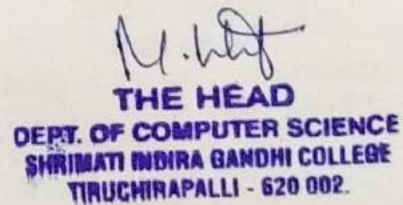 THE HEAD
DEPT. OF COMPUTER SCIENCE
SHRIMATI INDIRA GANDHI COLLEGE
TIRUCHIRAPALLI - 620 002.